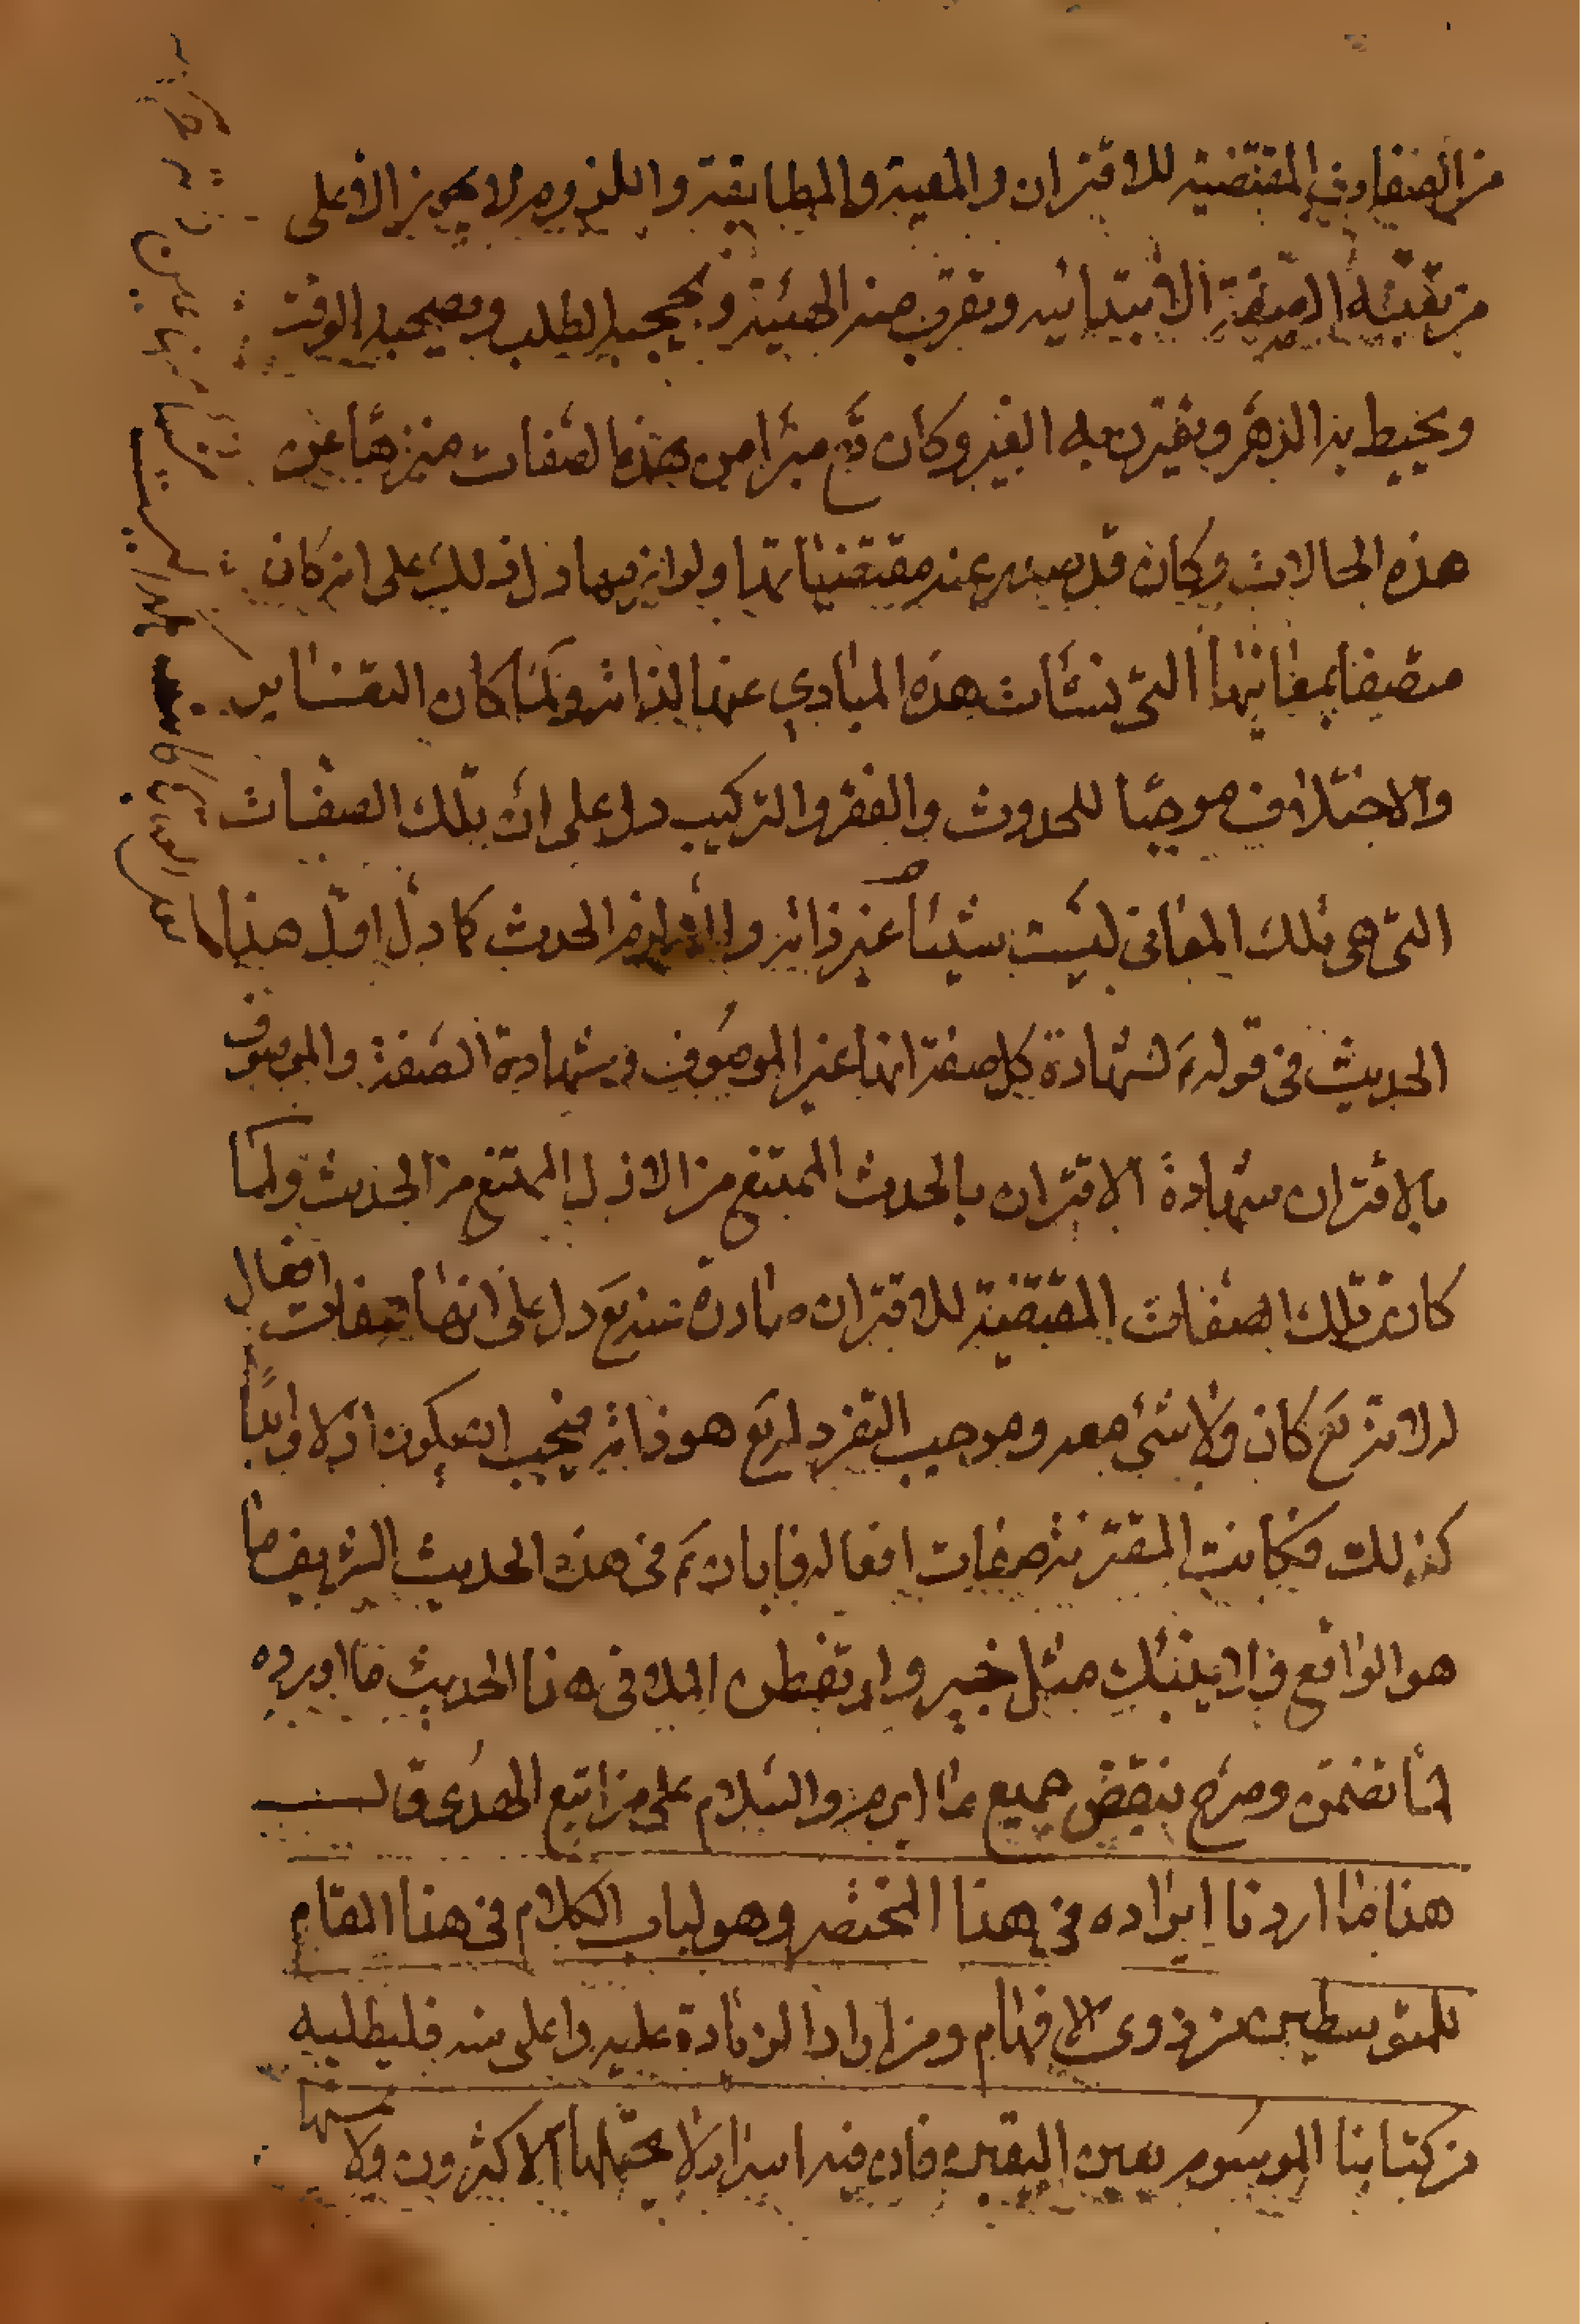 من الصفات المقتضية للاقتران والمعية والمطابقة واللزوم لا يجوز الا على
من تقيّده الصفة الابتدائية وتقرب منه الهيئة ويحجبه الطلب ويصحبه الوقت
ويحيط به الدهر ويقترن به الغير وكان تع مبرا من هذه الصفات منزهًا عن
هذه الحالات وكان قد صدر عنه مقتضياتها ولوازمها دل ذلك على انه كان
متصفا بمعانيها التي نشأت هذه المبادي عنها لذاته ولمّا كان التغاير
والاختلاف موجبًا للحدوث والفقر والتركيب دل على ان تلك الصفات
التي هي تلك المعاني ليست شيئا غير ذاته والا لزم الحدث كما دل اول هذا
الحديث في قوله ع لشهادة كل صفة انها غير الموصوف وشهادة الصفة والموصوف
بالاقتران شهادة الاقتران بالحدث الممتنع من الازل الممتنع من الحدث ولمّا
كانت تلك الصفات المقتضية للاقتران صادرة عنه تع دل على انها صفات افعال
له لانه تع كان ولا شيء معه وموجب التفرد له تع هو ذاته فيجب ان يكون ازلا وابدًا
كذلك فكانت المقترنة صفات افعاله فابان ع في هذا الحديث الشريف ما
هو الواقع ولا ينبئك مثل خبير ولو تفطن الملا في هذا الحديث ما اورده
لما تضمن وصرح بنقض جميع ما ابرم والسلام على من اتبع الهدى قال
هذا ما اردنا ايراده في هذا المختصر وهو لباب الكلام في هذا المقام
للمتوسطين من ذوى الافهام ومن اراد الزيادة عليه واعلى منه فليطلبه
من كتابنا الموسوم بعين اليقين فان فيه اسرارا لا يحتملها الا كثرون ولا يمسها